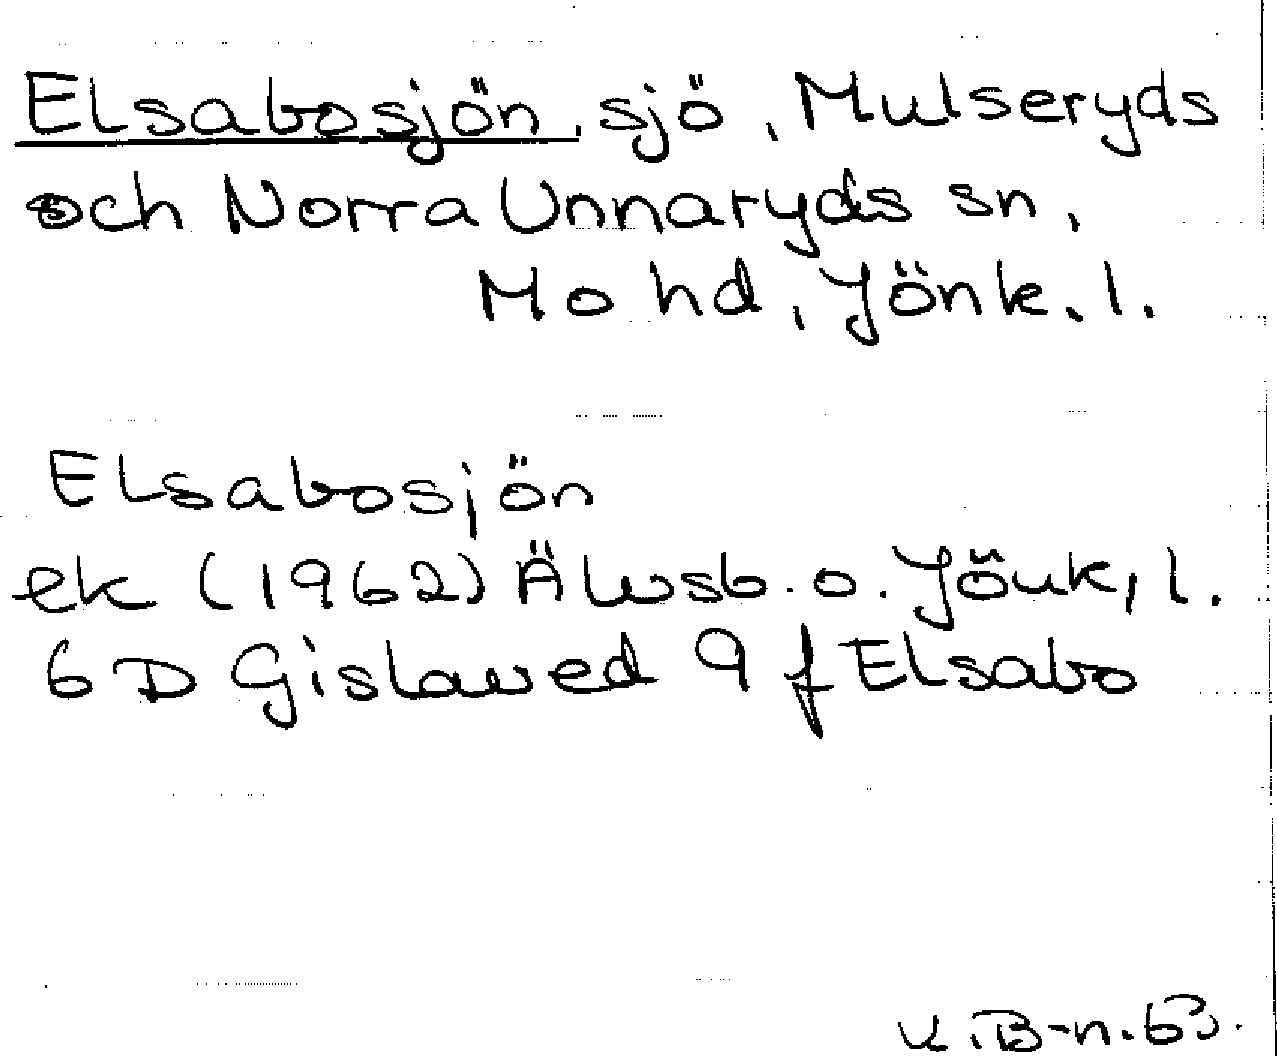 Elsabosjön, sjö, Mulseryds
och Norra Unnaryds sn,
Mo hd, Jönk. l.
Elsabosjön
ek (1962) Älvsb. o. Jönk, l.
6 D Gislaved 9 f Elsabo
K. B-n. 63.